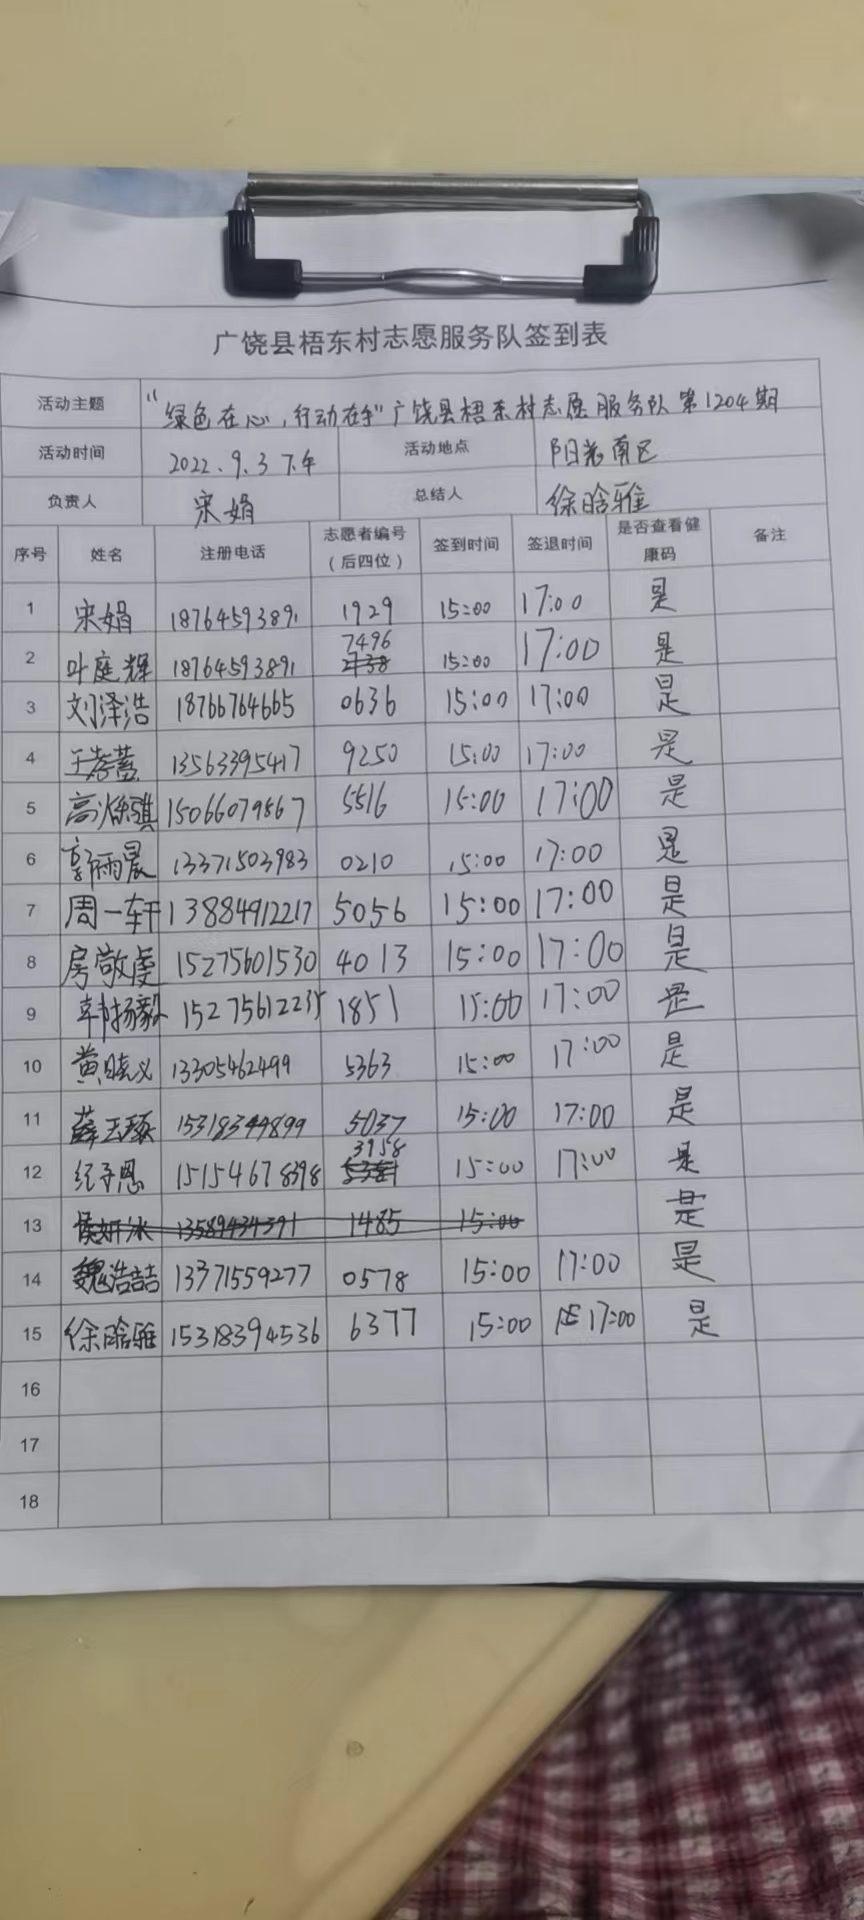 广饶县梧东村志愿服务队签到表
活动主题 “绿色在心,行动在手”广饶县梧东村志愿服务队第1204期
活动时间 2022.9.3 下午 活动地点 阳光南区
负责人 宋娟 总结人 徐晗雅
序号 姓名 注册电话 志愿者编号(后四位) 签到时间 签退时间 是否查看健康码 备注
1 宋娟 18764593891 1929 15:00 17:00 是
2 叶庭辉 18764593891 7496 15:00 17:00 是
3 刘泽浩 18766764665 0636 15:00 17:00 是
4 13563395417 9250 15:00 17:00 是
5 15066079867 5516 15:00 17:00 是
6 郭雨晨 13371503983 0210 15:00 17:00 是
7 周一轩 13884912217 5056 15:00 17:00 是
8 房敬虔 15275601530 4013 15:00 17:00 是
9 韩扬毅 1851 15:00 17:00 是
10 黄晓义 13305462499 5363 15:00 17:00 是
11 15318349899 5037 15:00 17:00 是
12 纪予恩 15154678398 3958 15:00 17:00 是
13 侯妍冰 13589434391 1485 15:00 是
14 魏浩喆 13371559277 0578 15:00 17:00 是
15 徐晗雅 15318394536 6377 15:00 17:00 是
16
17
18